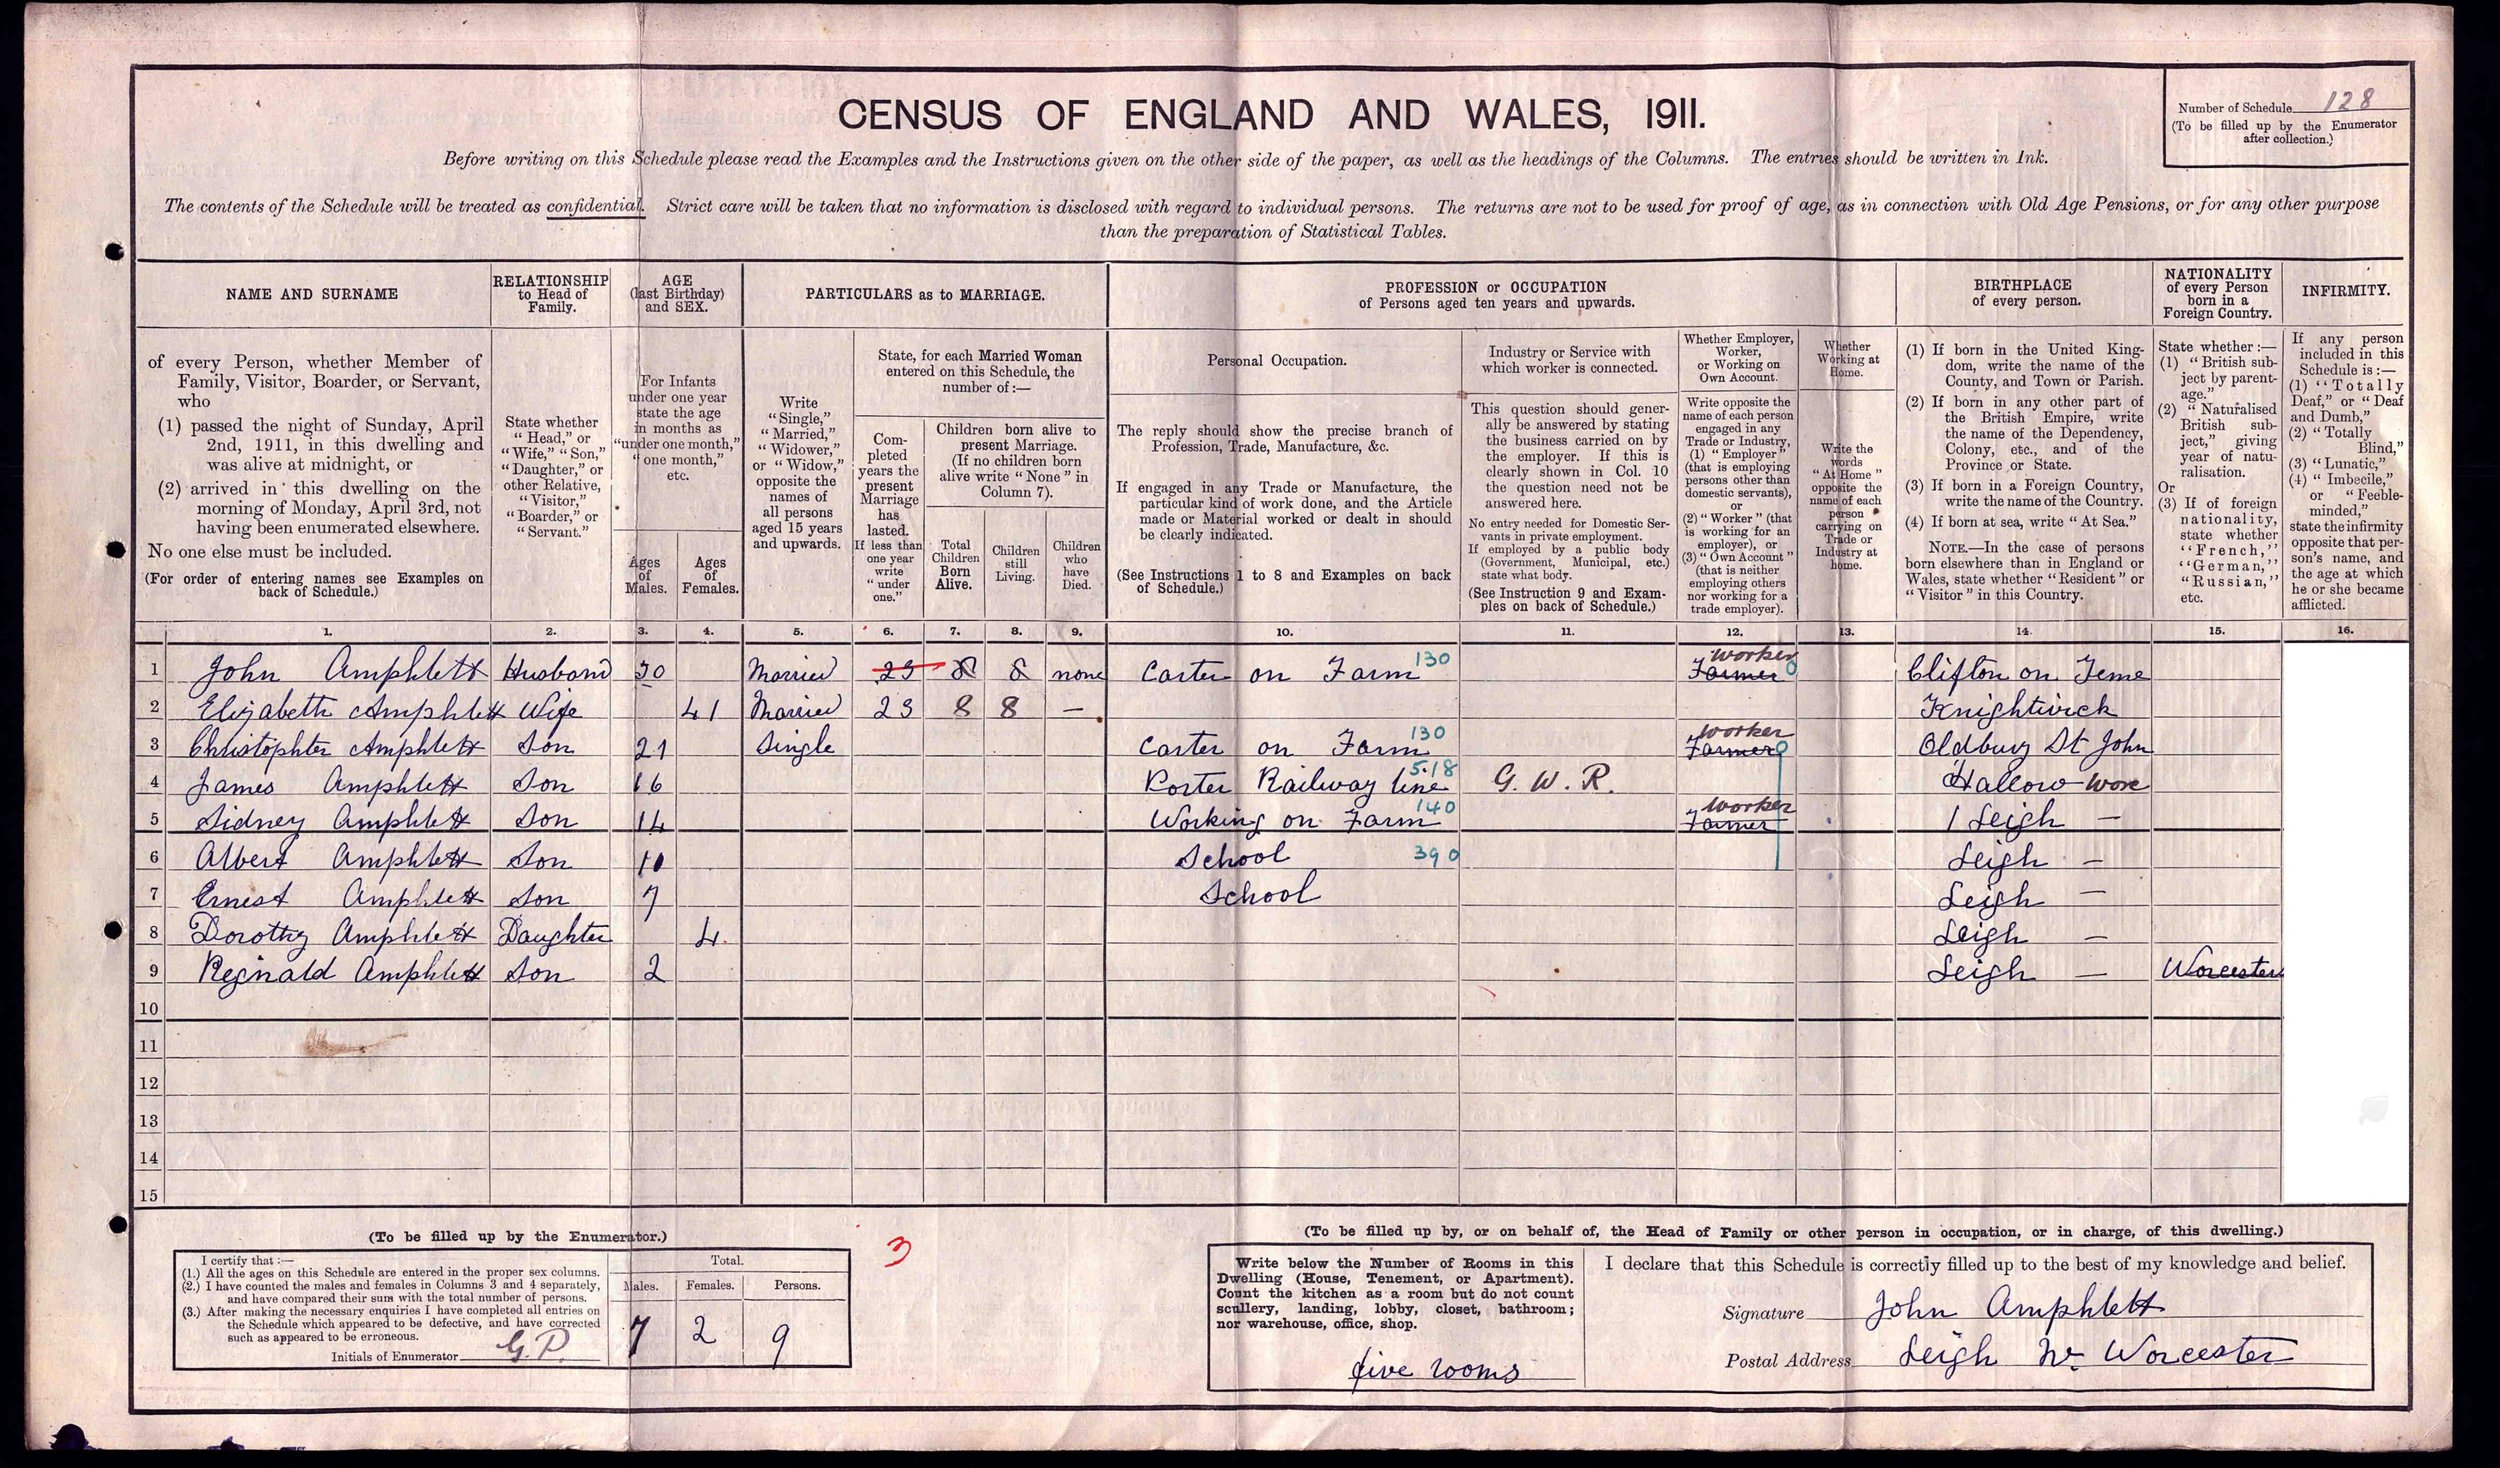 CENSUS OF ENGLAND AND WALES, 1911.
Number of Schedule 128
(To be filled up by the Enumerator
after collection.)
Before writing on this Schedule please read the Examples and the Instructions given on the other side of the paper, as well as the headings of the Columns. The entries should be written in Ink.
The contents of the Schedule will be treated as confidential. Strict care will be taken that no information is disclosed with regard to individual persons. The returns are not to be used for proof of age, as in connection with Old Age Pensions, or for any other purpose
than the preparation of Statistical Tables.
NAME AND SURNAME
RELATIONSHIP
to Head of
Family.
AGE
(last Birthday)
and SEX.
PARTICULARS as to MARRIAGE.
PROFESSION or OCCUPATION
of Persons aged ten years and upwards.
BIRTHPLACE
of every person.
NATIONALITY
of every Person
born in a
Foreign Country.
INFIRMITY.
of every Person, whether Member of
Family, Visitor, Boarder, or Servant,
who
(1) passed the night of Sunday, April
2nd, 1911, in this dwelling and
was alive at midnight, or
(2) arrived in this dwelling on the
morning of Monday, April 3rd, not
having been enumerated elsewhere.
No one else must be included.
(For order of entering names see Examples on
back of Schedule.)
State whether
"Head," or
"Wife," "Son,"
"Daughter," or
other Relative,
"Visitor,"
"Boarder," or
"Servant."
For Infants
under one year
state the age
in months as
"under one month,"
"one month,"
etc.
Ages
of
Males.
Ages
of
Females.
Write
"Single,"
"Married,"
"Widower,"
or "Widow,"
opposite the
names of
all persons
aged 15 years
and upwards.
State, for each Married Woman
entered on this Schedule, the
number of:—
Com-
pleted
years the
present
Marriage
has
lasted.
If less than
one year
write
"under
one."
Children born alive to
present Marriage.
(If no children born
alive write "None" in
Column 7).
Total
Children
Born
Alive.
Children
still
Living.
Children
who
have
Died.
Personal Occupation.
The reply should show the precise branch of
Profession, Trade, Manufacture, &c.
If engaged in any Trade or Manufacture, the
particular kind of work done, and the Article
made or Material worked or dealt in should
be clearly indicated.
(See Instructions 1 to 8 and Examples on back
of Schedule.)
Industry or Service with
which worker is connected.
This question should gener-
ally be answered by stating
the business carried on by
the employer. If this is
clearly shown in Col. 10
the question need not be
answered here.
No entry needed for Domestic Ser-
vants in private employment.
If employed by a public body
(Government, Municipal, etc.)
state what body.
(See Instruction 9 and Exam-
ples on back of Schedule.)
Whether Employer,
Worker,
or Working on
Own Account.
Write opposite the
name of each person
engaged in any
Trade or Industry,
(1) "Employer"
(that is employing
persons other than
domestic servants),
or
(2) "Worker" (that
is working for an
employer), or
(3) "Own Account"
(that is neither
employing others
nor working for a
trade employer).
Whether
Working at
Home.
Write the
words
"At Home"
opposite the
name of each
person
carrying on
Trade or
Industry at
home.
(1) If born in the United King-
dom, write the name of the
County, and Town or Parish.
(2) If born in any other part of
the British Empire, write
the name of the Dependency,
Colony, etc., and of the
Province or State.
(3) If born in a Foreign Country,
write the name of the Country.
(4) If born at sea, write "At Sea."
NOTE.—In the case of persons
born elsewhere than in England or
Wales, state whether "Resident" or
"Visitor" in this Country.
State whether:—
(1) "British sub-
ject by parent-
age."
(2) "Naturalised
British sub-
ject," giving
year of natu-
ralisation.
Or
(3) If of foreign
nationality,
state whether
"French,"
"German,"
"Russian,"
etc.
If any person
included in this
Schedule is:—
(1) "Totally
Deaf," or "Deaf
and Dumb,"
(2) "Totally
Blind,"
(3) "Lunatic,"
(4) "Imbecile,"
or "Feeble-
minded,"
state the infirmity
opposite that per-
son's name, and
the age at which
he or she became
afflicted.
1. 2. 3. 4. 5. 6. 7. 8. 9. 10. 11. 12. 13. 14. 15. 16.
1 John Amphlett Husband 50 Married 23 8 8 none Carter on Farm 130 Farmer Worker 0 Clifton on Teme
2 Elizabeth Amphlett Wife 41 Married 23 8 8 — Knightwick
3 Christophter Amphlett Son 21 Single Carter on Farm 130 Farmer Worker 0 Oldbury St John
4 James Amphlett Son 16 Porter Railway line 518 G. W. R. Hallow Worc
5 Sidney Amphlett Son 14 Working on Farm 140 Farmer Worker Leigh —
6 Albert Amphlett Son 10 School 390 Leigh —
7 Ernest Amphlett Son 7 School Leigh —
8 Dorothy Amphlett Daughter 4 Leigh —
9 Reginald Amphlett Son 2 Leigh — Worcester
10
11
12
13
14
15
(To be filled up by the Enumerator.)
I certify that:—
(1.) All the ages on this Schedule are entered in the proper sex columns.
(2.) I have counted the males and females in Columns 3 and 4 separately,
and have compared their sum with the total number of persons.
(3.) After making the necessary enquiries I have completed all entries on
the Schedule which appeared to be defective, and have corrected
such as appeared to be erroneous.
Initials of Enumerator G.P.
Total.
Males. Females. Persons.
7 2 9
3
(To be filled up by, or on behalf of, the Head of Family or other person in occupation, or in charge, of this dwelling.)
Write below the Number of Rooms in this
Dwelling (House, Tenement, or Apartment).
Count the kitchen as a room but do not count
scullery, landing, lobby, closet, bathroom;
nor warehouse, office, shop.
five rooms
I declare that this Schedule is correctly filled up to the best of my knowledge and belief.
Signature John Amphlett
Postal Address Leigh Nr Worcester